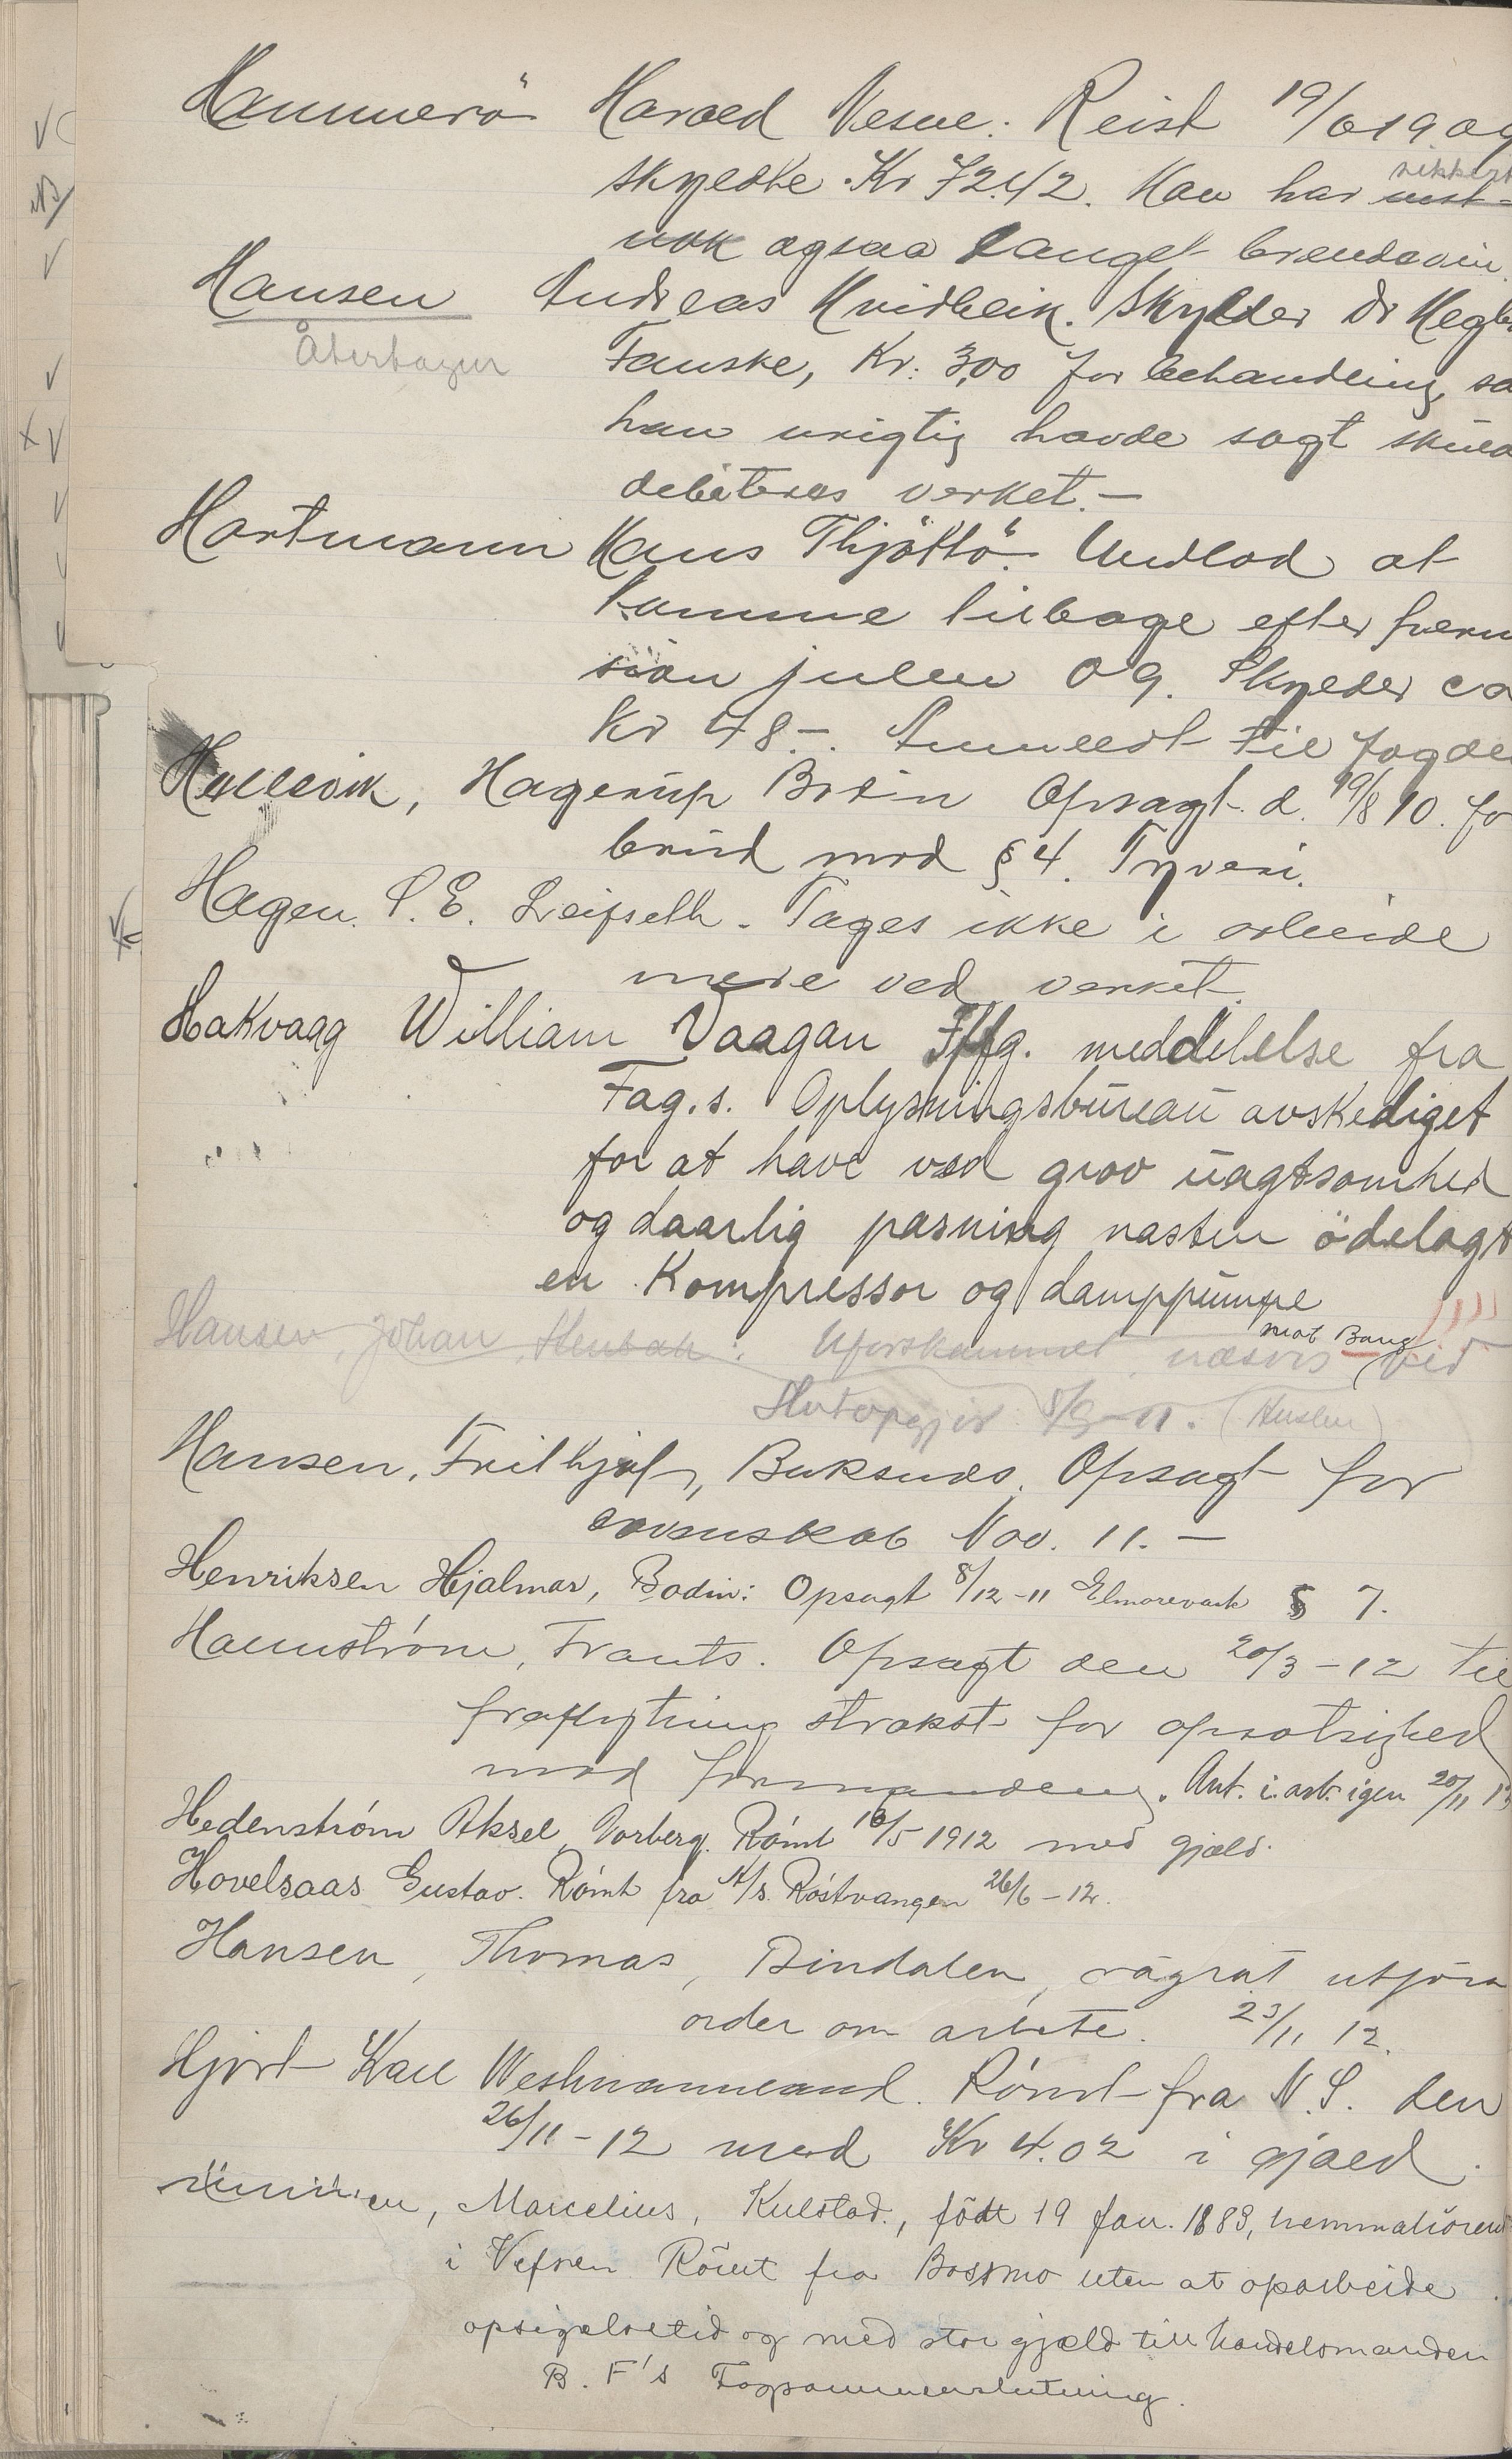 Hammerö Harald Vesne. Reist 19/6 19 og
sikkert
skyldte Kr 72.42. Han har vist-
nok ogsaa langet brændevin.
Hansen Andreas Hvidbeik. Skylder Dr Hegb
Återtagen Fauske, Kr: 3,00 for behandling, so
han urigtig havde sagt skuld
debiteres verket.-
Hartmann Hans Thjöttö. Undlod at
komme tilbage efter frem
siön julen 09. Skylder ca
Kr 48.-. Anmeldt til fogde
Hellevik, Hagerup Bodin Opsagt d. 19/8 10. fo
brud mod § 4. Tyveri.
Hagen. P.E. Leifseth. Tages ikke i arbeide
mere ved verket.
Hakvaag William Vaagan Iflg. meddelelse fra
Fag.s. Oplysningsbureau avskediget
for at have ved grov uagtsomhed
og daarlig pasning nasten ödelagt
en Kompressor og damppumpe
mot Bang
Hansen, Johan, : Uforskammet næsvis ved
Slutopgjör 8/9-11. 
Hansen, Frithjof, Buksnes. Opsagt for
dovenskab Nov. 11.-
Henriksen Hjalmar, Bodin: Opsagt 8/12-11 § 7.
Hammström, Frants. Opsagt den 20/3-12 til
fraflytning strakst for opsatsighed
mod formanden. Ant. i. arb. igen 20/11 1
Hedenström Aksel Varberg. Römt 10/5 1912 med gjæld.
Hovelsaas Gustav. Römt fra A/s. Röstvangen 26/6-12.
Hansen, Thomas, Bindalen, vägrat utföra
order om arbete. 23/11 12.
Hjort Karl Westmannland. Römt fra N.S. den
26/11-12 med Kr 4.02 i gjæld.
Marcelius, Kulstad., född 19 Jan. 1883, hemmahörend
i Vefsen Römt fra Bossmo uten at oparbeide
opsigelsetid og med stor gjæld till handelsmanden
B. F's Fagsammenslutning.